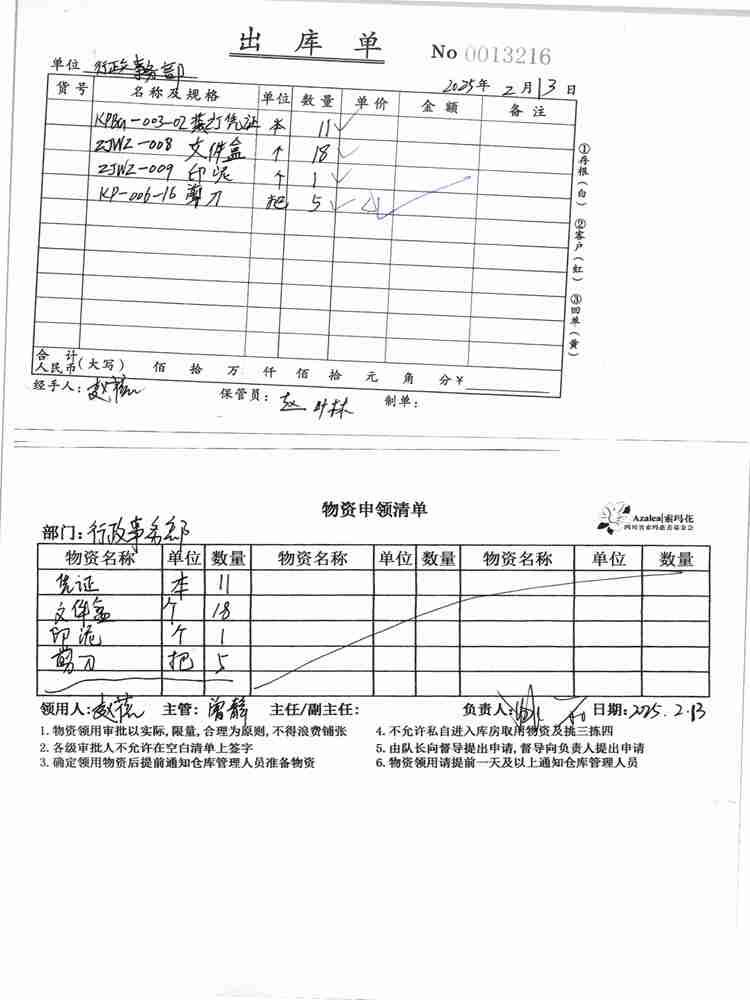 出库单 No 0013216
单位 行政事务部
2025年 2月13日
货号 名称及规格 单位 数量 单价 金额 备注
-003-02 装订凭证 本 11
ZJWZ-008 文件盒 个 18
ZJWZ-009 印泥 个 1
KP-006-16 剪刀 把 5
①存根(白) ②客户(红) ③回单(黄)
合计
人民币(大写) 佰 拾 万 仟 佰 拾 元 角 分 ¥
经手人: 赵 保管员: 赵 林 制单:
物资申领清单
Azalea|索玛花
四川省索玛慈善基金会
部门: 行政事务部
物资名称 单位 数量 物资名称 单位 数量 物资名称 单位 数量
凭证 本 11
文件盒 个 18
印泥 个 1
剪刀 把 5
领用人: 赵 主管: 曾静 主任/副主任: 负责人: 日期: 2025.2.13
1. 物资领用审批以实际,限量,合理为原则,不得浪费铺张
2. 各级审批人不允许在空白清单上签字
3. 确定领用物资后提前通知仓库管理人员准备物资
4. 不允许私自进入库房取用物资及挑三拣四
5. 由队长向督导提出申请,督导向负责人提出申请
6. 物资领用请提前一天及以上通知仓库管理人员